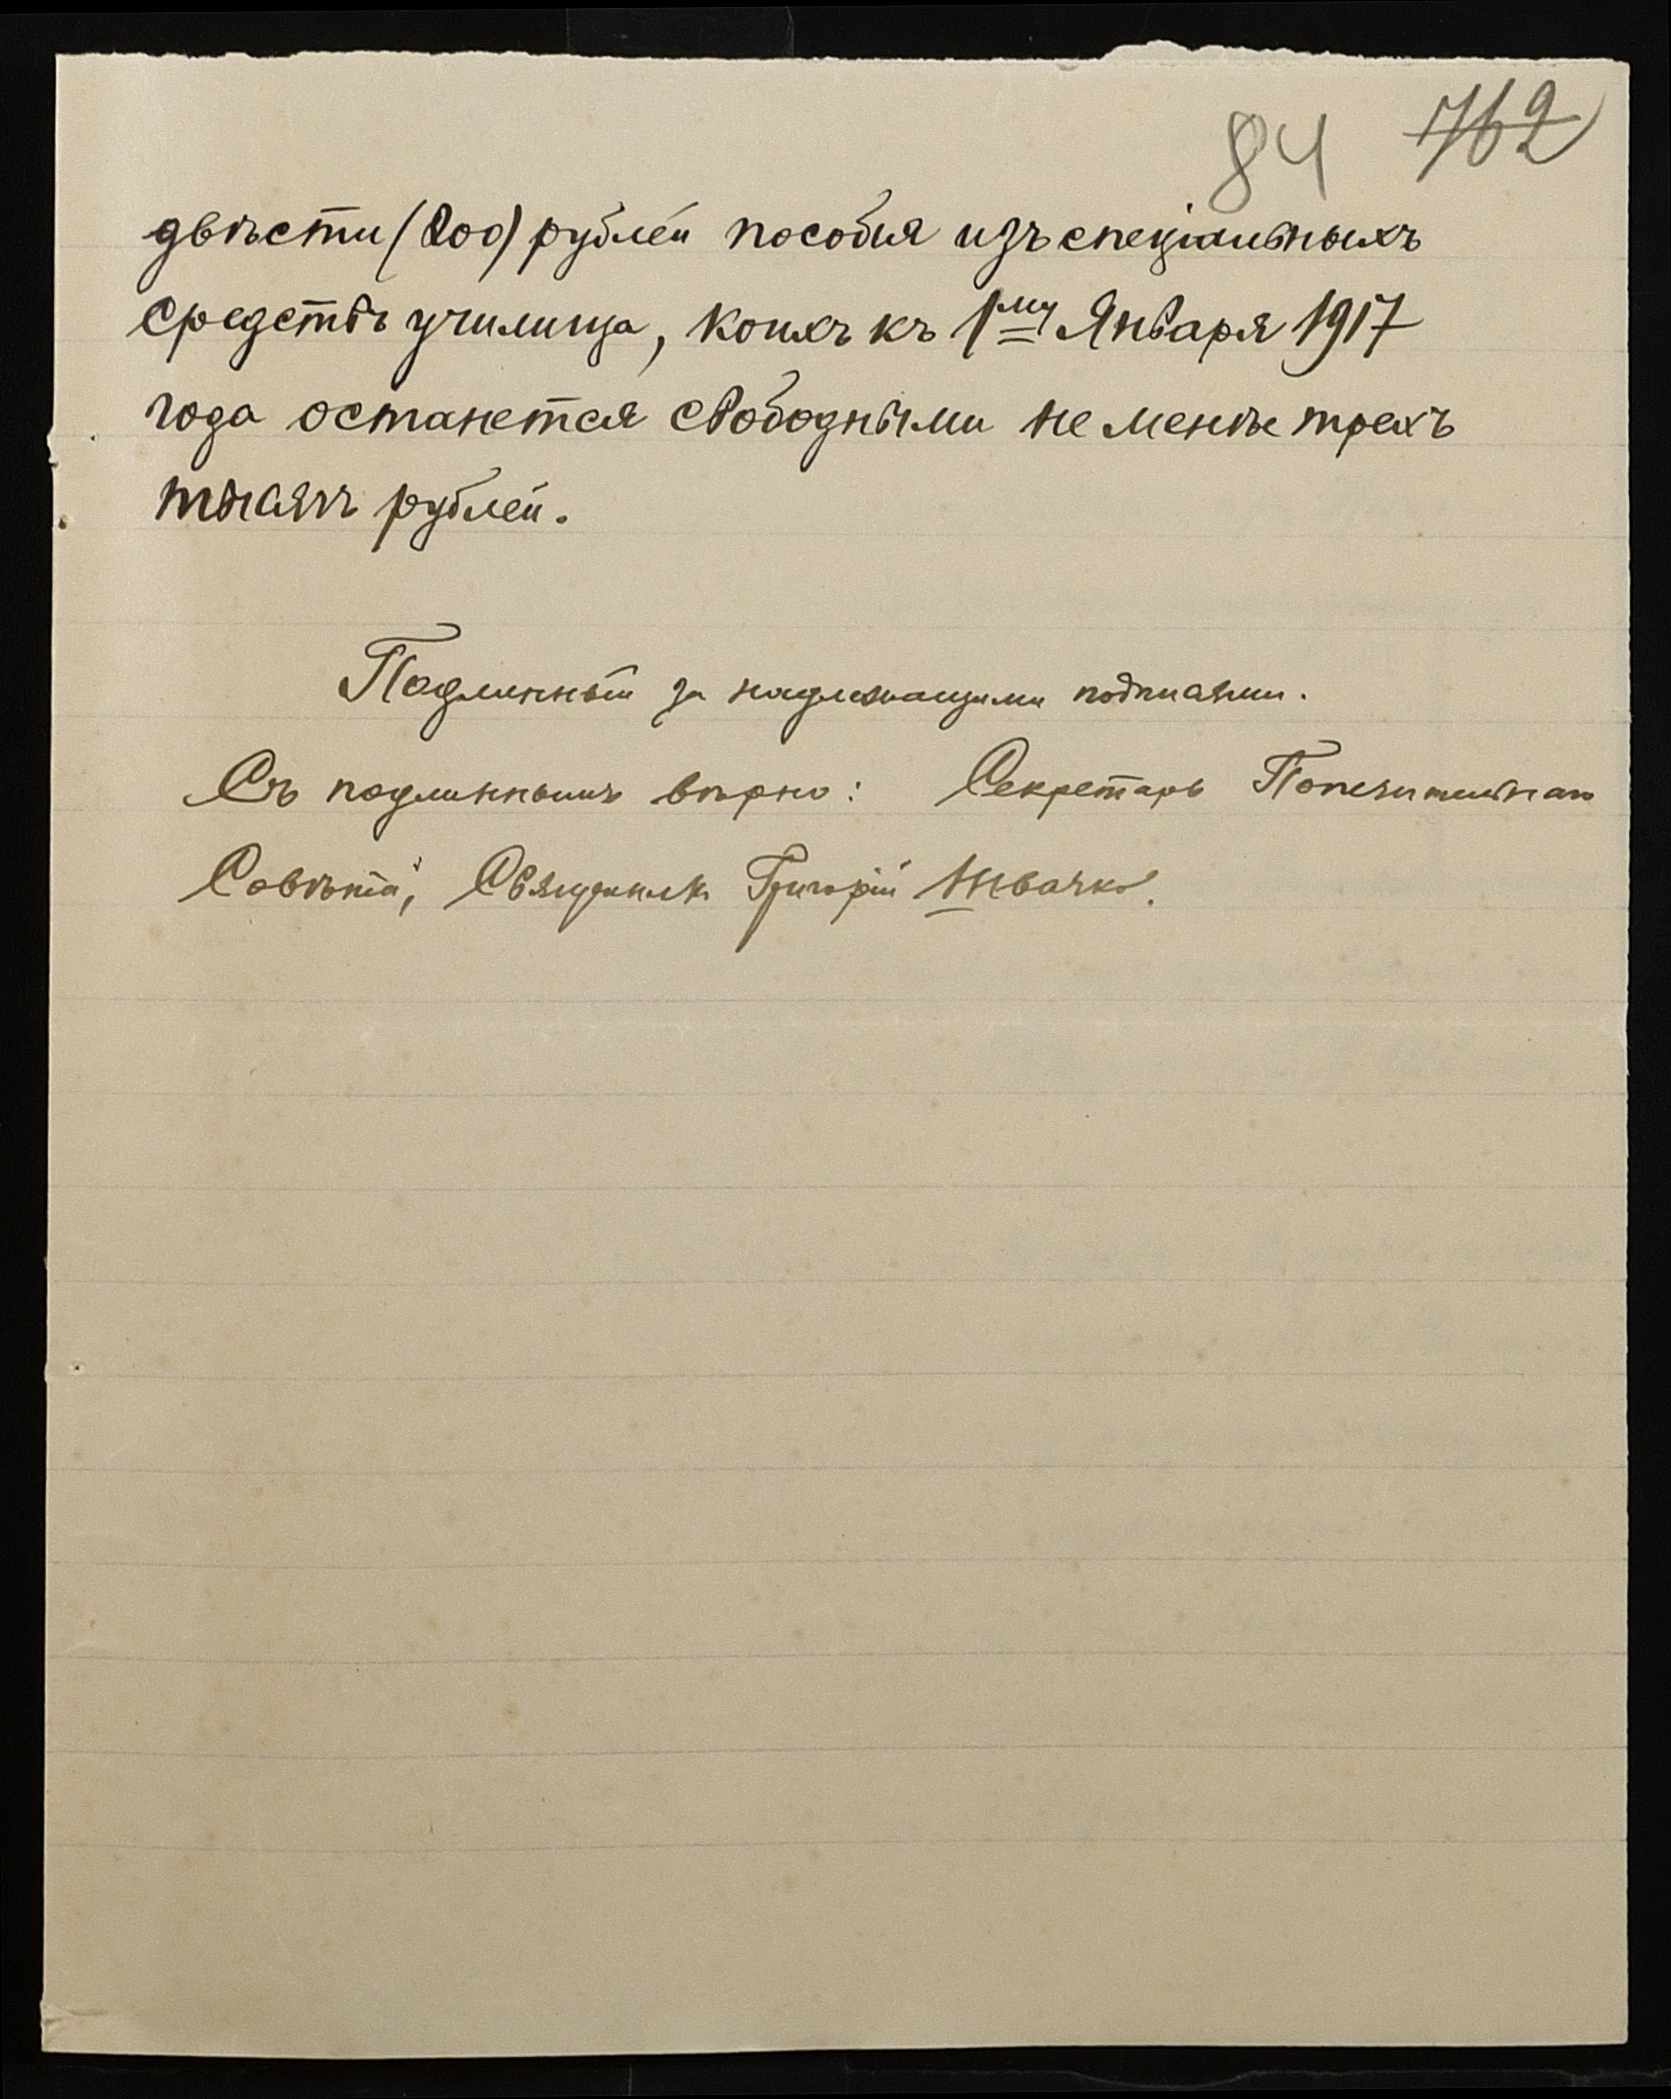 84 762
двѣсти (200) рублей пособія изъ спеціальныхъ
средствъ училища, коихъ къ 1му Января 1917
года останется свободными не менѣе трехъ
тысячъ рублей.
Подлинный за надлежащими подписями.
Съ подлиннымъ вѣрно: Секретарь Попечительнаго
Совѣта, Священникъ Григорій